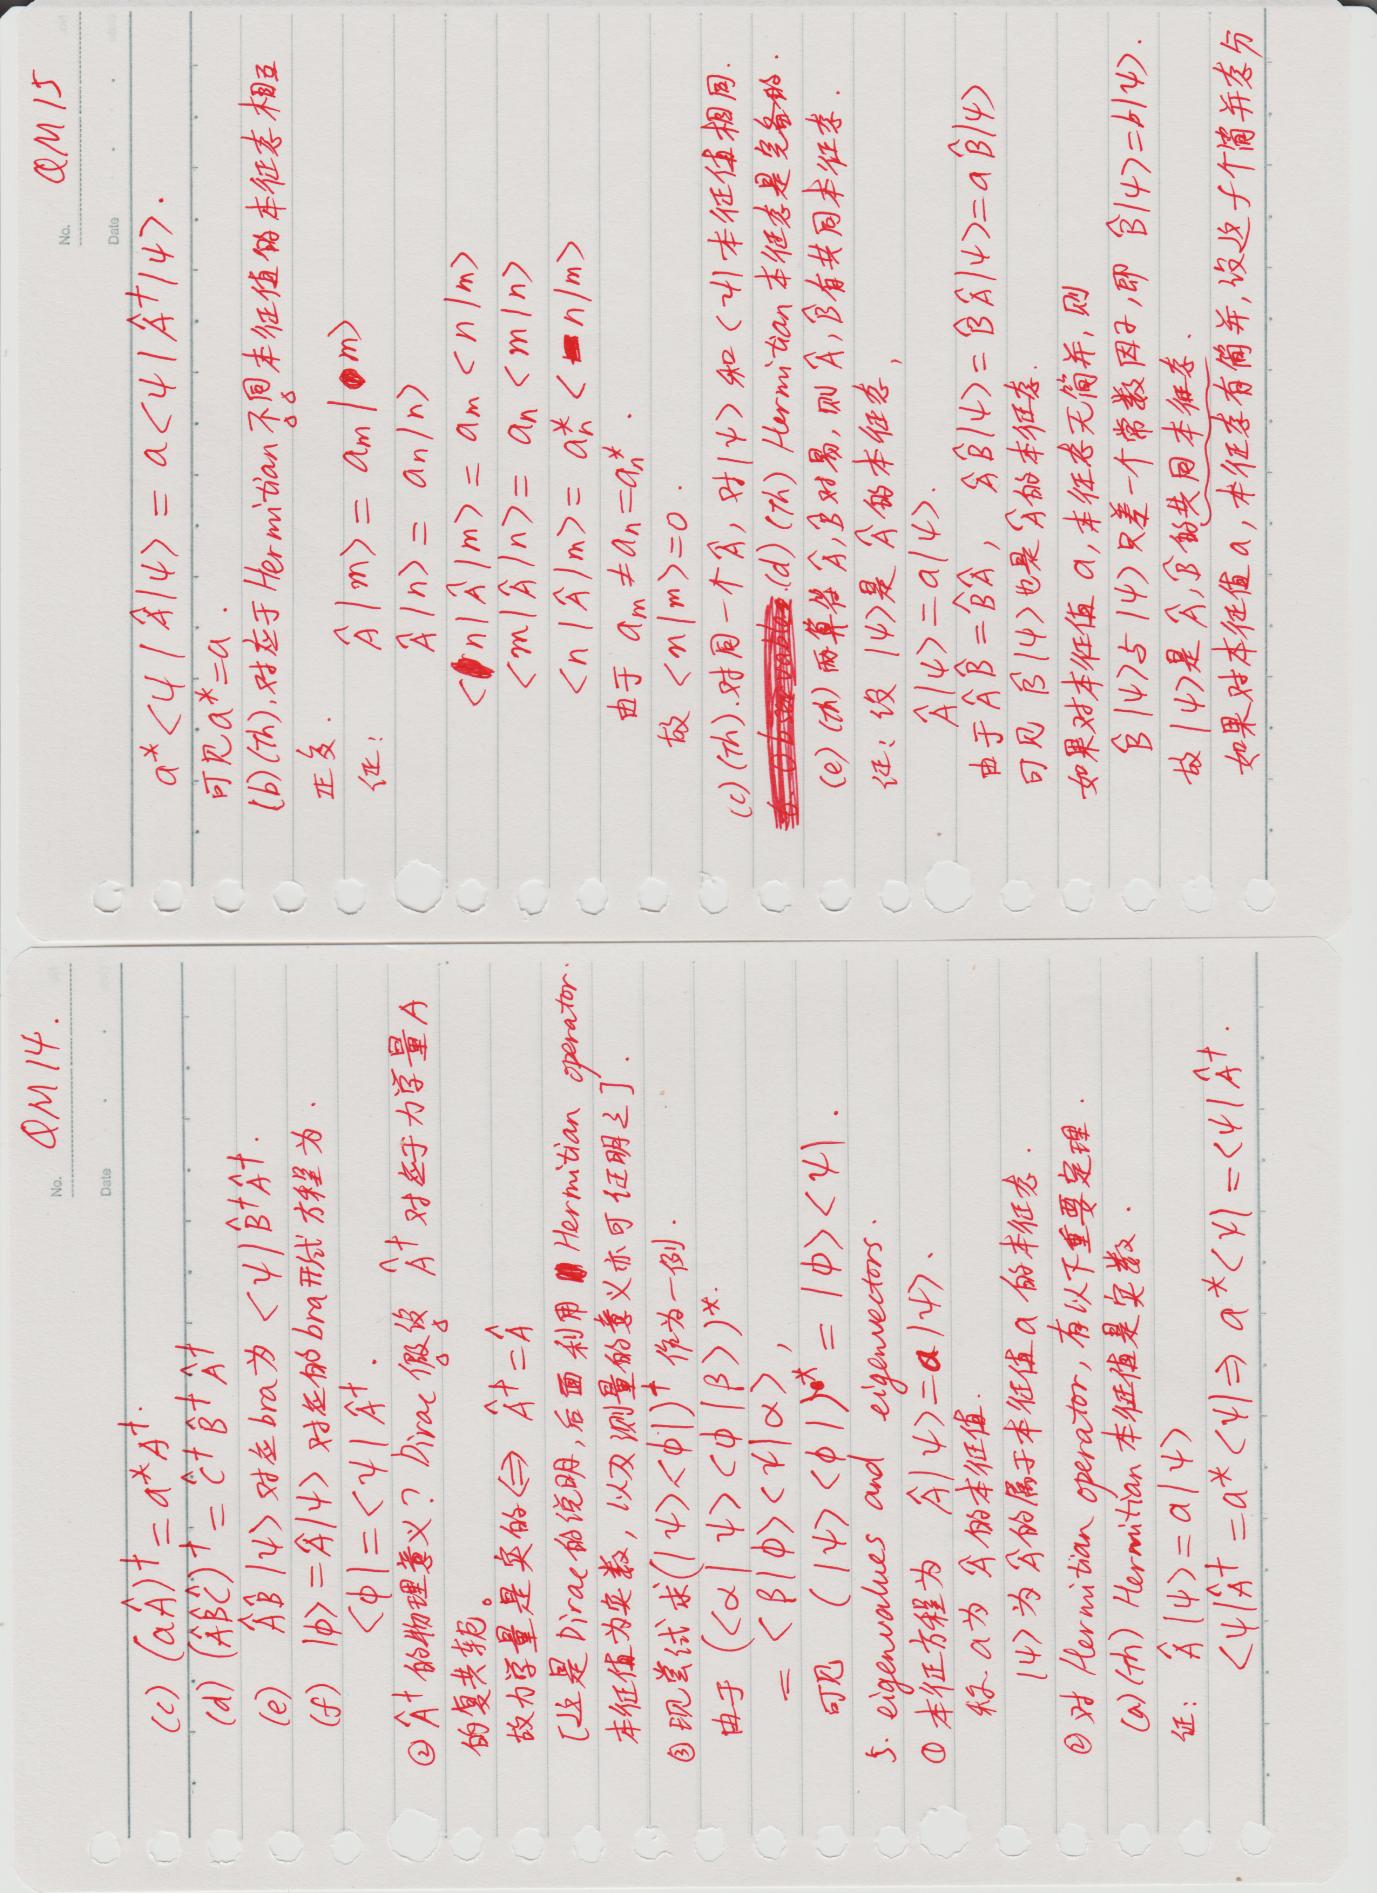 No. QM14.
Date
(c) (aÂ)† = a*A†.
(d) (ÂB̂Ĉ)† = Ĉ†B̂†Â†
(e) ÂB̂|ψ> 对应bra为 <ψ|B̂†Â†.
(f) |φ> = Â|ψ> 对应的bra形式方程为.
<φ| = <ψ|Â†.
② Â†的物理意义? Dirac假设 Â†对应于力学量A
的复共轭。
故力学量是实的 ⇔ Â† = Â
[这是Dirac的说明,后面利用 Hermitian operator.
本征值为实数,以及测量的意义亦可证明之].
③ 现尝试求(|ψ><φ|)† 作为一例.
由于 (<α|ψ><φ|β>)*.
= <β|φ><ψ|α>,
可见 (|ψ><φ|)* = |φ><ψ|.
5. eigenvalues and eigenvectors.
① 本征方程为 Â|ψ> = a|ψ>.
称 a为 Â的本征值.
|ψ>为Â的属于本征值 a 的本征态.
② 对 Hermitian operator, 有以下重要定理.
(a)(th) Hermitian 本征值是实数.
证: Â|ψ> = a|ψ>
<ψ|Â† = a*<ψ| ⇒ a*<ψ| = <ψ|Â†.
No. QM15
Date
a*<ψ|Â|ψ> = a<ψ|Â†|ψ>.
可见 a* = a.
(b)(th). 对应于Hermitian 不同本征值的本征态相互
正交.
证: Â|m> = am|m>
Â|n> = an|n>
<n|Â|m> = am<n|m>
<m|Â|n> = an<m|n>
<n|Â|m> = an*<n|m>
由于 am ≠ an = an*.
故 <n|m> = 0.
(c)(th). 对同一个Â, 对|ψ> 和 <ψ| 本征值相同.
(d)(th) Hermitian 本征态是完备的.
(e)(th) 两算符 Â, B̂对易, 则 Â, B̂有共同本征态.
证: 设 |ψ>是 Â的本征态,
Â|ψ> = a|ψ>.
由于ÂB̂ = B̂Â, ÂB̂|ψ> = B̂Â|ψ> = aB̂|ψ>
可见 B̂|ψ>也是Â的本征态.
如果对本征值 a, 本征态无简并, 则
B̂|ψ>与|ψ>只差一个常数因子, 即 B̂|ψ> = b|ψ>.
故 |ψ>是 Â, B̂的共同本征态.
如果对本征值 a, 本征态有简并, 设这 f 个简并态分